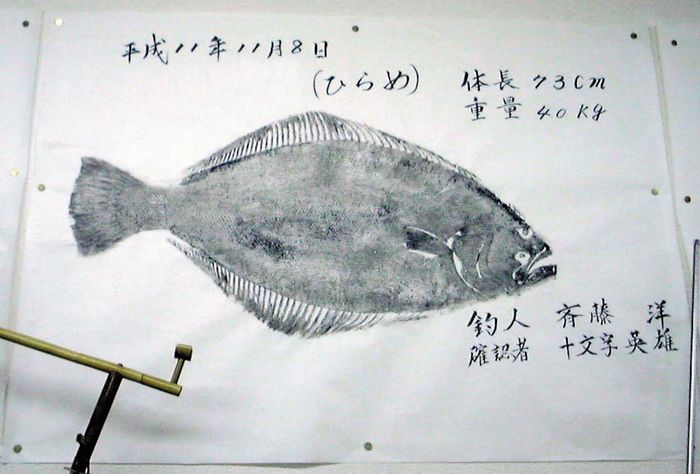 平成11年11月8日
(ひらめ)
体長 73cm
重量 4.0kg
釣人 斉藤 洋
確認者 十文字英雄